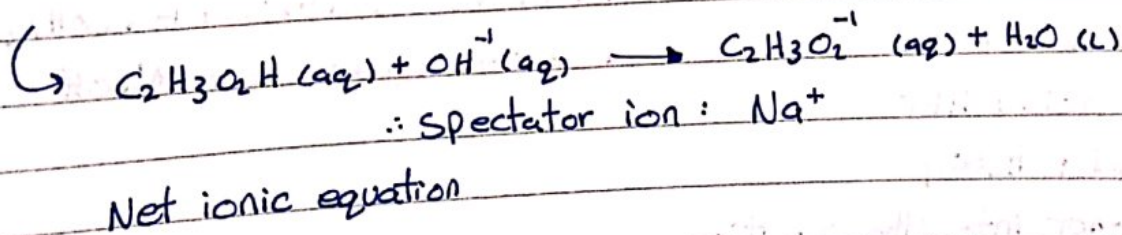 ↳ C₂H₃O₂H (aq) + OH⁻¹ (aq) ⟶ C₂H₃O₂⁻¹ (aq) + H₂O (L)
∴ Spectator ion : Na⁺
Net ionic equation